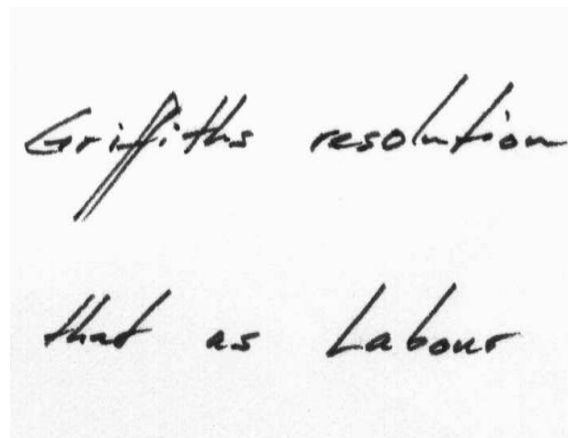 Griffiths resolution
that as Labour